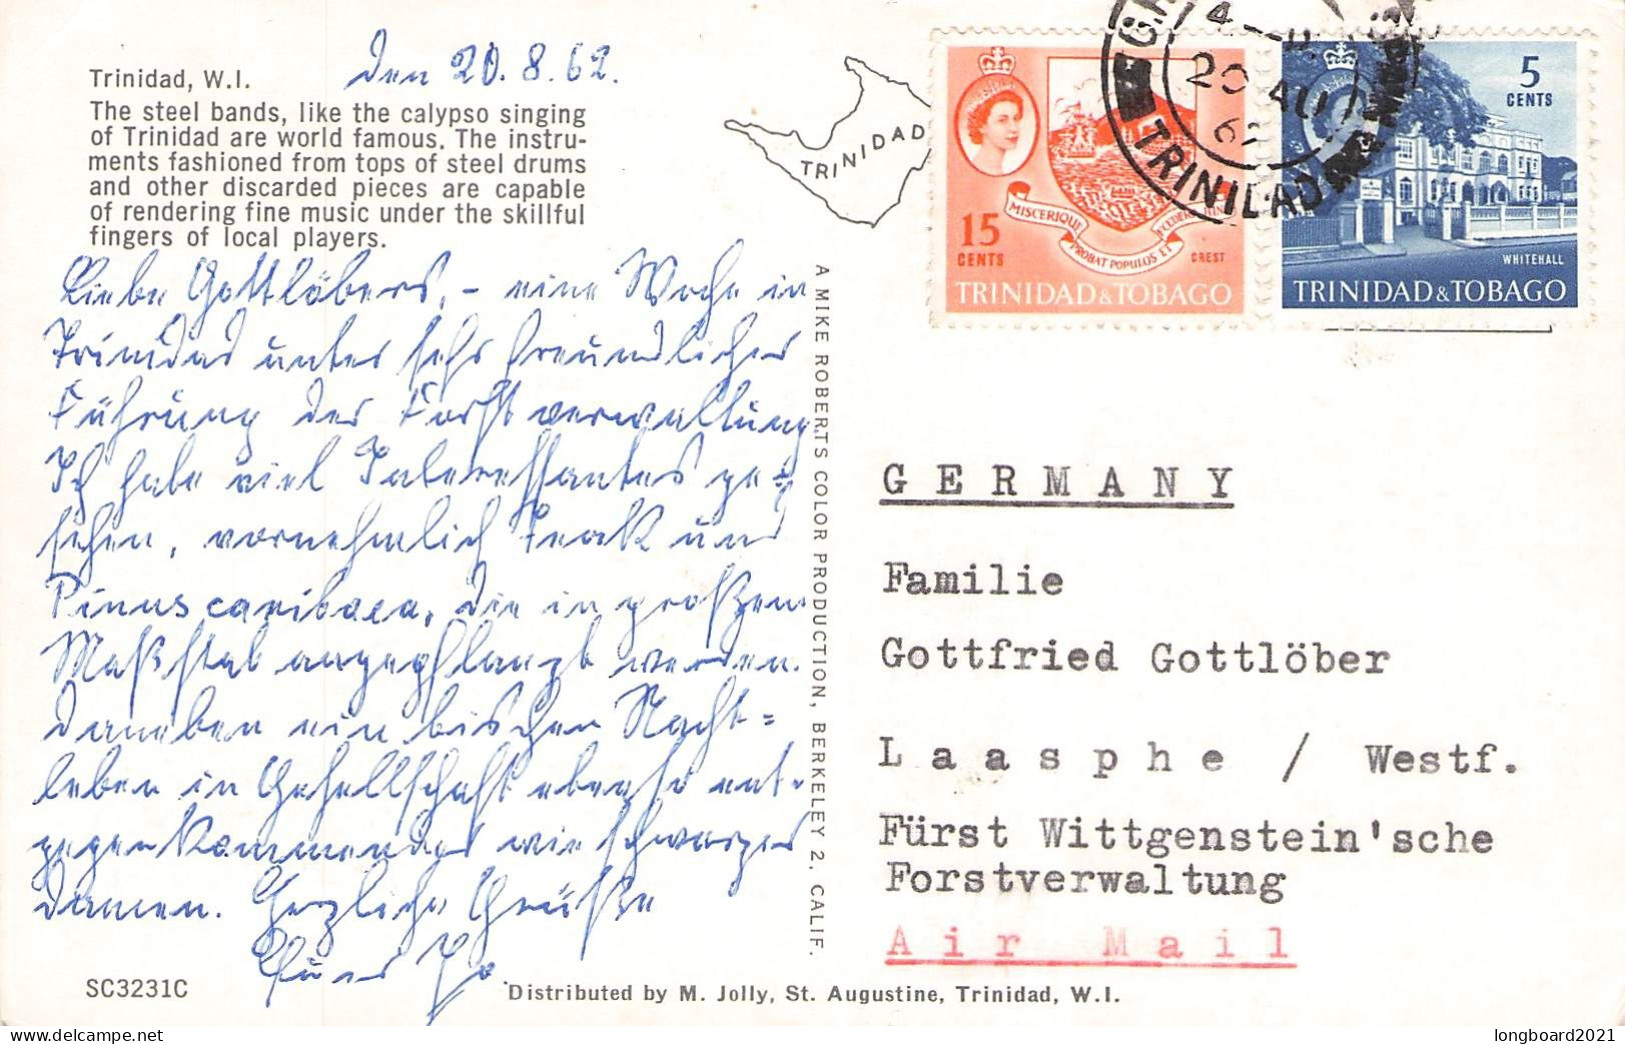 Trinidad, W.I.
Den 20. 8. 62.
The steel bands, like the calypso singing
of Trinidad are world famous. The instru-
ments fashioned from tops of steel drums
and other discarded pieces are capable
of rendering fine music under the skillful
fingers of local players.
Liebe Gottlöbers, – eine Woche in
Trinidad unter sehr freundlicher
Führung der Forstverwaltung.
Ich habe viel Interessantes ge-
sehen, vornehmlich Teak und
Pinus caribaea, die in großem
Maßstab angepflanzt werden.
Daneben ein bischen Nacht=
leben in Gesellschaft ebenso ent-
gegen kommender wie schwarzer
Damen. Herzliche Grüße
Euer
SC3231C
A MIKE ROBERTS COLOR PRODUCTION, BERKELEY 2, CALIF.
Distributed by M. Jolly, St. Augustine, Trinidad, W.I.
TRINIDAD
15
CENTS
MISCERIQUE PROBAT POPULOS ET
CREST
TRINIDAD & TOBAGO
5
CENTS
WHITEHALL
TRINIDAD & TOBAGO
20 AU
62
TRINIDAD
GERMANY
Familie
Gottfried Gottlöber
Laasphe / Westf.
Fürst Wittgenstein'sche
Forstverwaltung
Air Mail
longboard2021